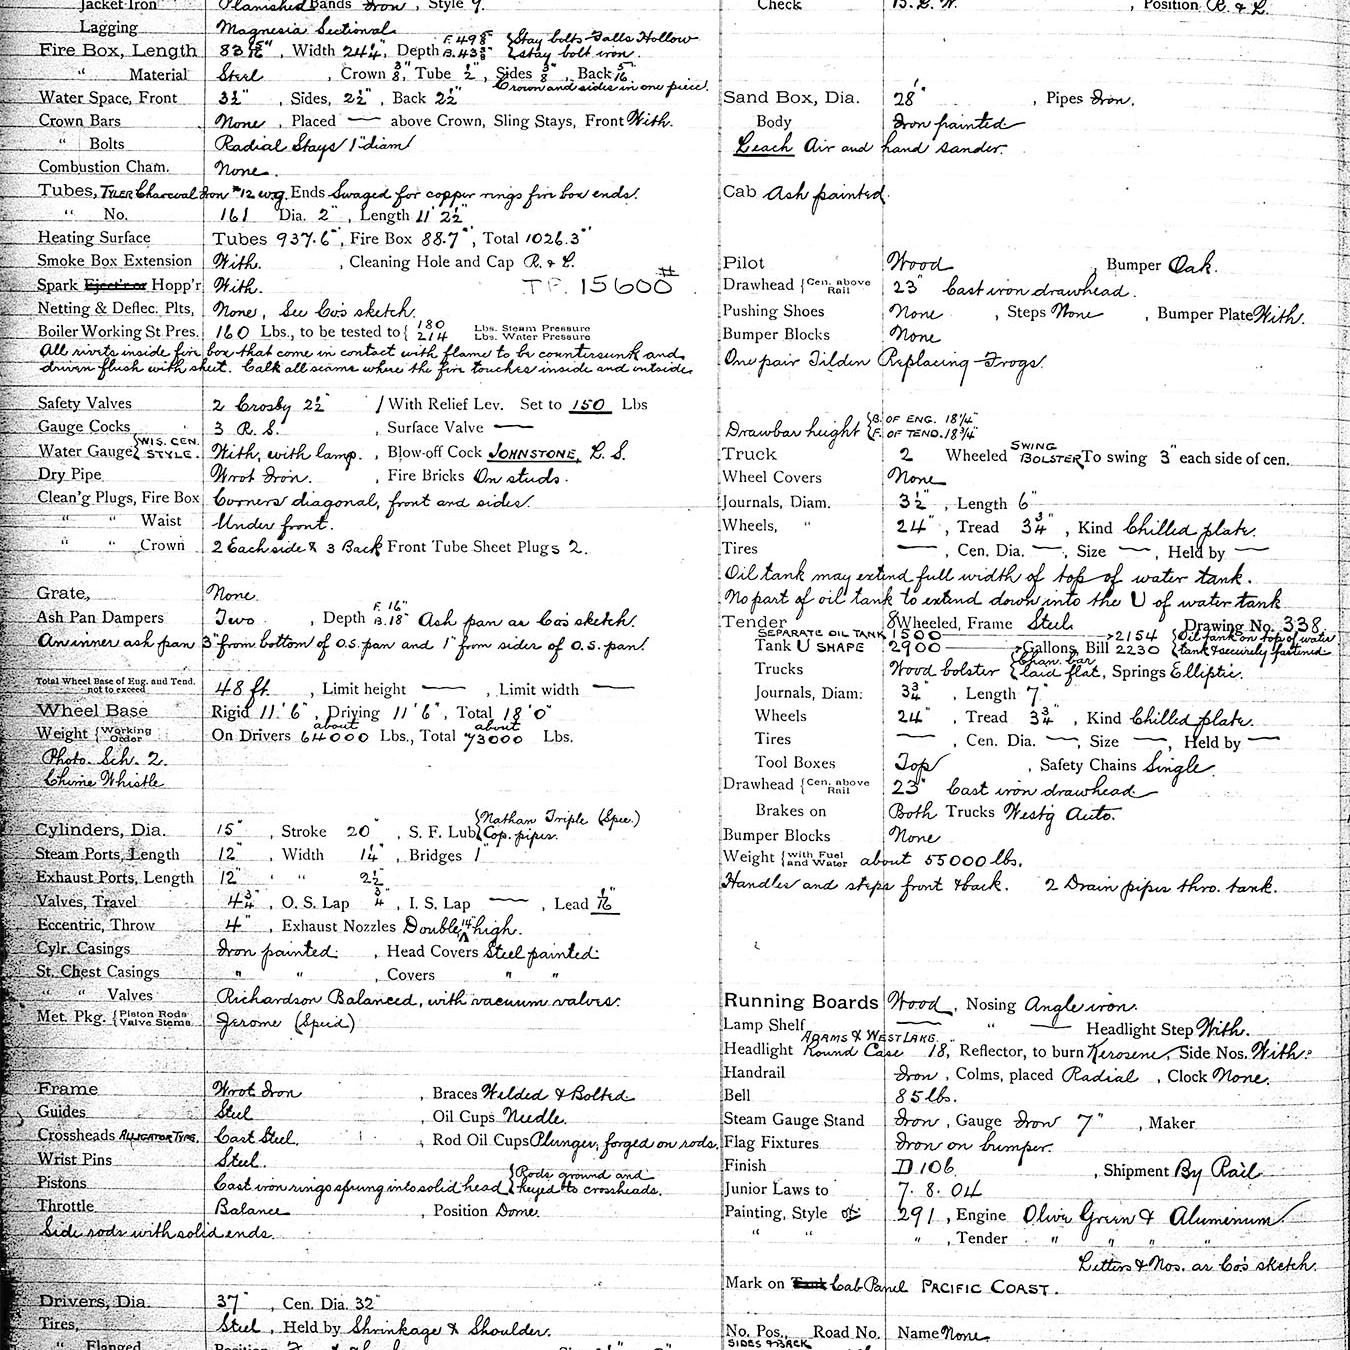 Jacket Iron Planished Bands Iron, Style 9.
Lagging Magnesia Sectional
Fire Box, Length 83 15/16", Width 24 1/4", Depth F. 49 5/8" B. 43 3/8" { Stay bolts Falls Hollow stay bolt iron.
" Material Steel, Crown 3/8", Tube 1/2", Sides 3/8", Back 5/16"
Crown and sides in one piece.
Water Space, Front 3 1/2", Sides, 2 1/2", Back 2 1/2"
Crown Bars None, Placed — above Crown, Sling Stays, Front With.
" Bolts Radial Stays 1" diam
Combustion Cham. None.
Tubes, Tyler Charcoal Iron #12 w.g. Ends Swaged for copper rings fire box ends.
" No. 161 Dia. 2", Length 11' 2 1/2"
Heating Surface Tubes 937.6 , Fire Box 88.7 , Total 1026.3
Smoke Box Extension With. , Cleaning Hole and Cap R. & L.
Spark Ejector or Hopp'r With. T.F. 15600#
Netting & Deflec. Plts, None, See Co's sketch.
Boiler Working St. Pres. 160 Lbs., to be tested to { 180 Lbs. Steam Pressure 214 Lbs. Water Pressure
All rivets inside fire box that come in contact with flame to be countersunk and
driven flush with sheet. Calk all seams where the fire touches inside and outside.
Safety Valves 2 Crosby 2 1/2" 1 With Relief Lev. Set to 150 Lbs
Gauge Cocks 3 R. S. , Surface Valve —
Water Gauge { WIS. CEN. STYLE. With, with lamp. , Blow-off Cock JOHNSTONE, L. S.
Dry Pipe Wrot Iron. , Fire Bricks On studs.
Clean'g Plugs, Fire Box Corners diagonal, front and sides.
" " Waist Under front.
" " Crown 2 Each side & 3 Back Front Tube Sheet Plugs 2.
Grate, None.
Ash Pan Dampers Two , Depth F. 16" B. 18" Ash pan as Co's sketch.
An inner ash pan 3" from bottom of O.S. pan and 1" from sides of O.S. pan.
Total Wheel Base of Eng. and Tend. not to exceed 48 ft. , Limit height — , Limit width —
Wheel Base Rigid 11' 6", Driving 11' 6", Total 18' 0"
Weight { Working Order On Drivers about 64000 Lbs., Total about 73000 Lbs.
Photo. Sch. 2.
Chime Whistle
Cylinders, Dia. 15" , Stroke 20" , S. F. Lub { Nathan Triple (Spec.) Cop. pipes.
Steam Ports, Length 12" , Width 1 1/4" , Bridges 1"
Exhaust Ports, Length 12" " " 2 1/2"
Valves, Travel 4 3/4" , O. S. Lap 3/4" , I. S. Lap — , Lead 1/16"
Eccentric, Throw 4" , Exhaust Nozzles Double 14" high.
Cylr. Casings Iron painted. , Head Covers Steel painted.
St. Chest Casings " " , Covers " "
" " Valves Richardson Balanced, with vacuum valves.
Met. Pkg. { Piston Rods Valve Stems Jerome (Specd)
Frame Wrot Iron , Braces Welded & Bolted
Guides Steel , Oil Cups Needle.
Crossheads ALLIGATOR TYPE. Cast Steel. , Rod Oil Cups Plunger, forged on rods.
Wrist Pins Steel.
Pistons Cast iron rings sprung into solid head { Rods ground and keyed to crossheads.
Throttle Balance , Position Dome.
Side rods with solid ends.
Drivers, Dia. 37" , Cen. Dia. 32"
Tires, Steel , Held by Shrinkage & Shoulder.
" Flanged
Check , Position R. & L.
Sand Box, Dia. 28" , Pipes Iron.
Body Iron painted
Leach Air and hand sander.
Cab Ash painted.
Pilot Wood , Bumper Oak.
Drawhead { Cen. above Rail 23" Cast iron drawhead.
Pushing Shoes None , Steps None , Bumper Plate With.
Bumper Blocks None
One pair Tilden Replacing Frogs.
Drawbar height { B. OF ENG. 18 1/4" F. OF TEND. 18 3/4"
Truck 2 Wheeled SWING BOLSTER To swing 3" each side of cen.
Wheel Covers None
Journals, Diam. 3 1/2" , Length 6"
Wheels, " 24" , Tread 3 3/4" , Kind Chilled plate.
Tires — , Cen. Dia. — , Size — , Held by —
Oil tank may extend full width of top of water tank.
No part of oil tank to extend down into the U of water tank
Tender 8 Wheeled, Frame Steel Drawing No. 338.
SEPARATE OIL TANK 1500 2154 { Oil tank on top of water
Tank U SHAPE 2900 Gallons, Bill 2230 tank & securely fastened.
Trucks Wood bolster { Chan. bar laid flat, Springs Elliptic.
Journals, Diam: 3 3/4" , Length 7"
Wheels 24" , Tread 3 3/4" , Kind Chilled plate.
Tires — , Cen. Dia. — , Size — , Held by —
Tool Boxes Top , Safety Chains Single.
Drawhead { Cen. above Rail 23" Cast iron drawhead
Brakes on Both Trucks Westg Auto.
Bumper Blocks None
Weight { with Fuel and Water about 55000 lbs.
Handles and steps front & back. 2 Drain pipes thro. tank.
Running Boards Wood , Nosing Angle iron.
Lamp Shelf — " — Headlight Step With.
Headlight ADAMS & WESTLAKE. Round Case 18", Reflector, to burn Kerosene, Side Nos. With.
Handrail Iron , Colms, placed Radial , Clock None.
Bell 85 lbs.
Steam Gauge Stand Iron , Gauge Iron 7" , Maker
Flag Fixtures Iron on bumper.
Finish D 106 , Shipment By Rail
Junior Laws to 7. 8. 04
Painting, Style of 291 , Engine Olive Green & Aluminum
" " " , Tender " " "
Letters & Nos. as Co's sketch.
Mark on Tank Cab Panel PACIFIC COAST.
No. Pos., Road No. Name None
SIDES & BACK